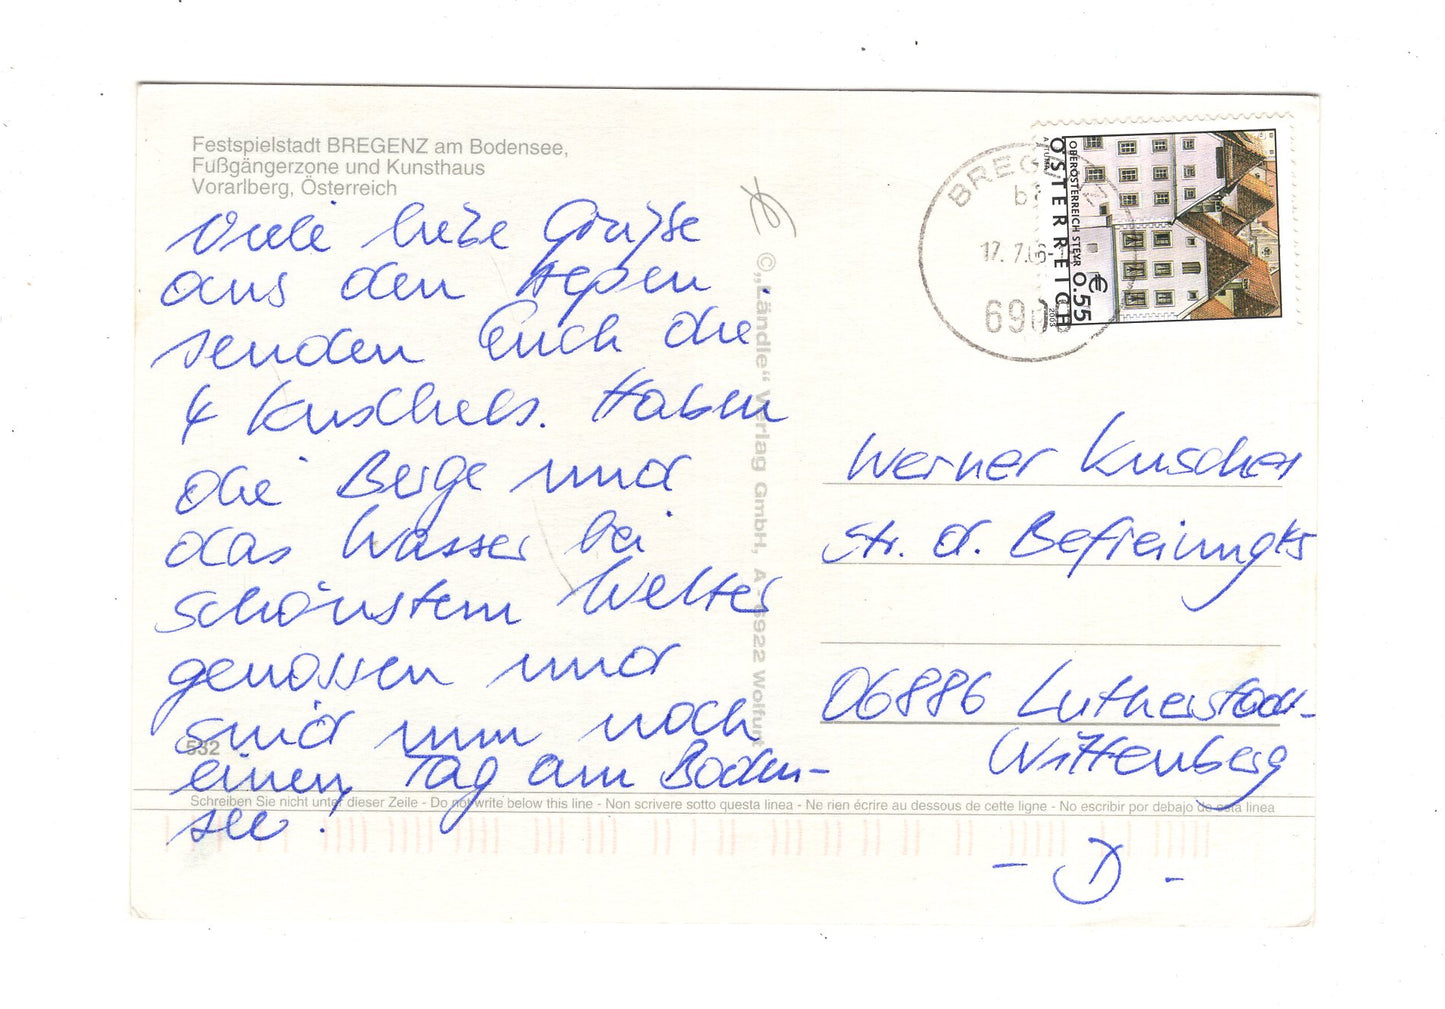 Festspielstadt BREGENZ am Bodensee,
Fußgängerzone und Kunsthaus
Vorarlberg, Österreich
Viele liebe Grüße
aus den Alpen
senden Euch die
4 Kuschels. Haben
die Berge und
das Wasser bei
schönstem Wetter
genossen und
sind nun noch
einen Tag am Boden-
see!
532
© „Ländle“ Verlag GmbH, A 6922 Wolfurt
BREGENZ
17. 7.06
690
ÖSTERREICH
OBERÖSTERREICH STEYR
€ 0.55
2005
Werner Kuschel
Str. d. Befreiung 
06886 Lutherstadt-
Wittenberg
Schreiben Sie nicht unter dieser Zeile - Do not write below this line - Non scrivere sotto questa linea - Ne rien écrire au dessous de cette ligne - No escribir por debajo de esta linea
- D -